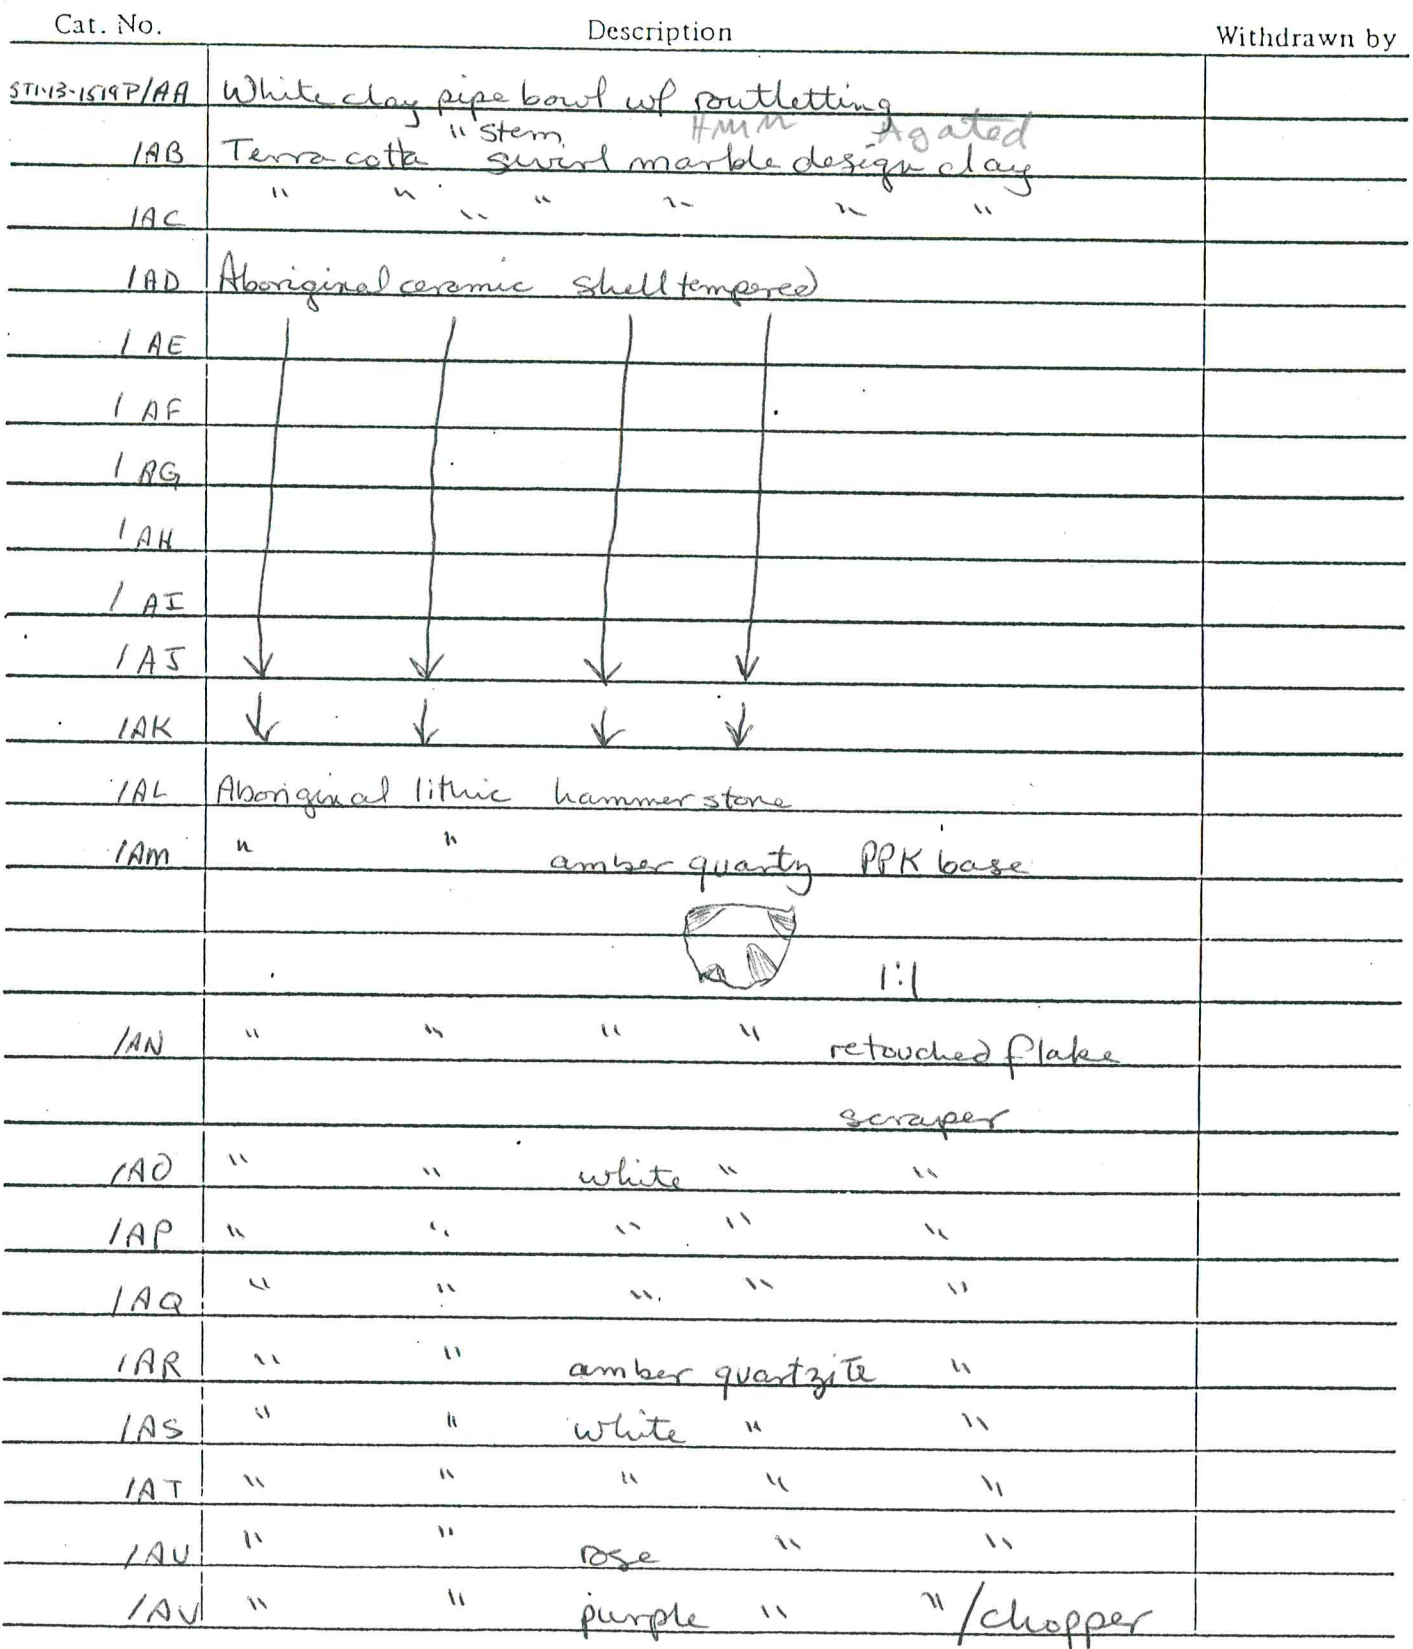 Cat. No. Description Withdrawn by
ST1-13-1519P/AA White clay pipe bowl w/ routletting
" Stem HMM Agated
/AB Terra cotta swirl marble design clay
/AC " " " " " " "
/AD Aboriginal ceramic shell tempered
/AE
/AF
/AG
/AH
/AI
/AJ
/AK
/AL Aboriginal lithic hammerstone
/AM " " amber quartz PPK base
1:1
/AN " " " " retouched flake
scraper
/AO " " white " "
/AP " " " " "
/AQ " " " " "
/AR " " amber quartzite "
/AS " " white " "
/AT " " " " "
/AU " " rose " "
/AV " " purple " "/chopper